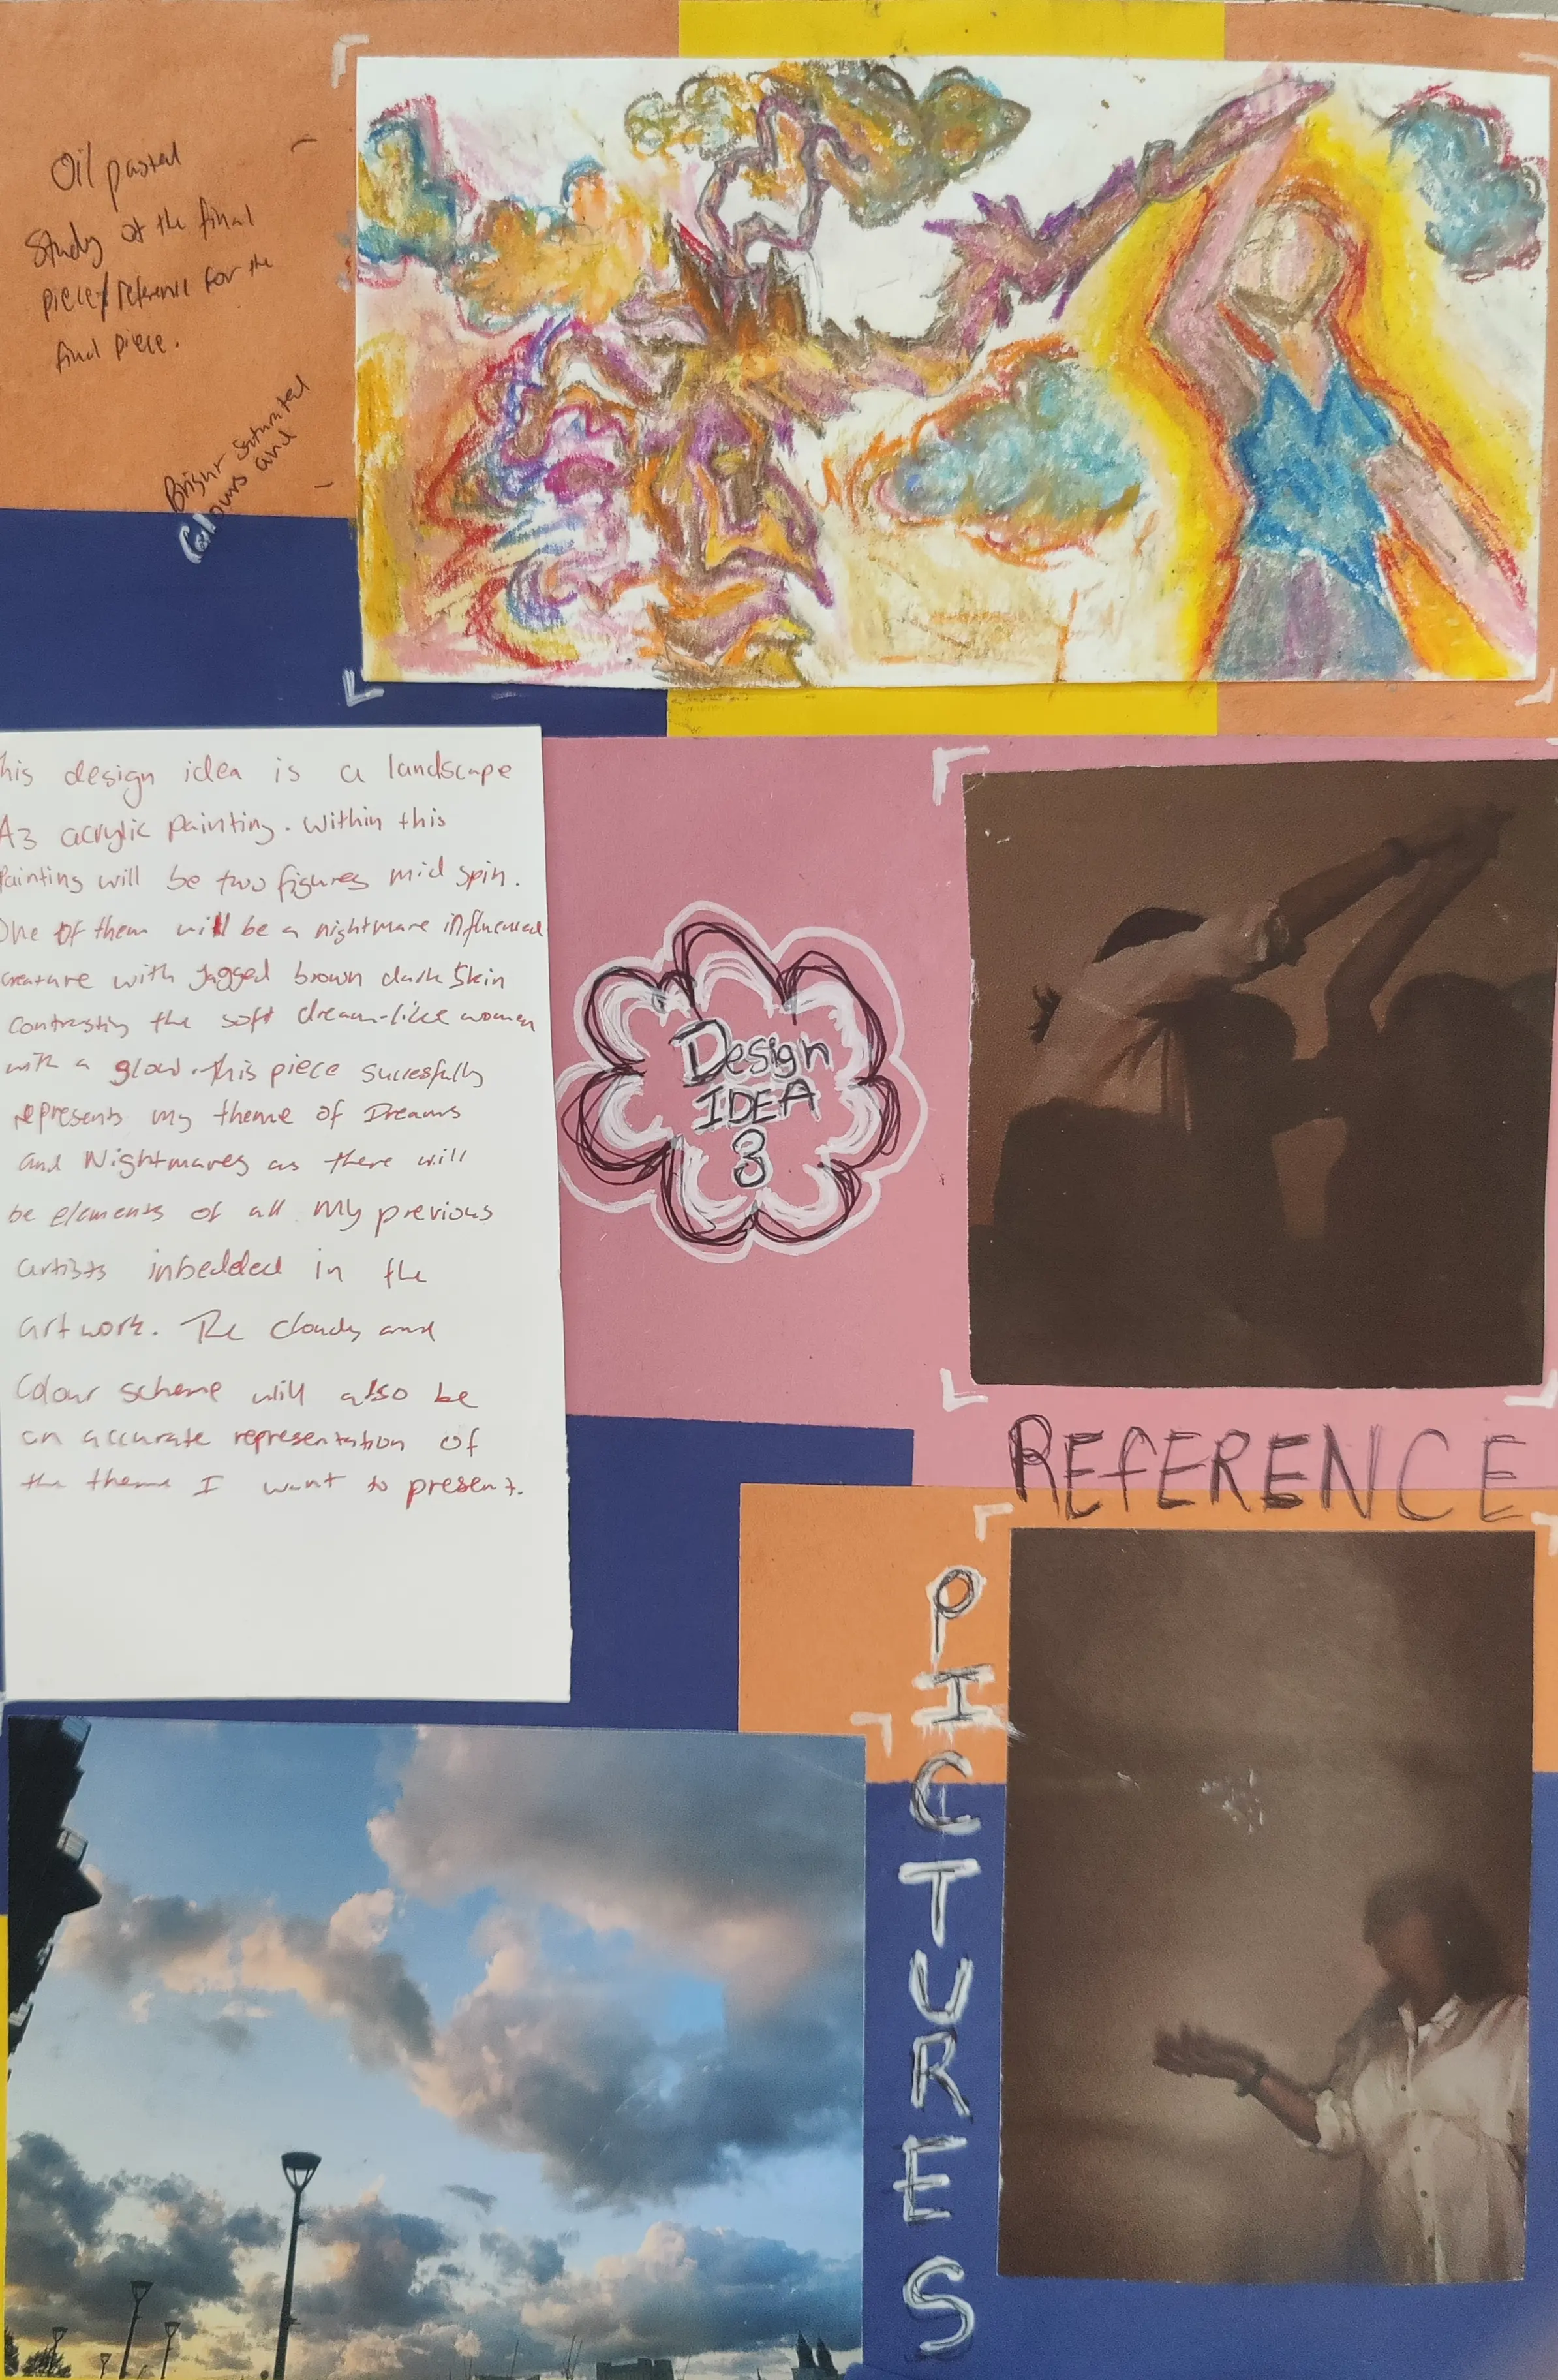 Oil pastel
Study of the final
piece/reference for the
final piece.
Bright saturated
Colours and
his design idea is a landscape
A3 acrylic painting. Within this
Painting will be two figures mid spin.
One of them will be a nightmare influenced
creature with Jagged brown dark skin
contrasting the soft dream-like women
with a glow. this piece succesfully
represents my theme of Dreams
and Nightmares as there will
be elements of all my previous
artists inbedded in the
artwork. The clouds and
Colour scheme will also be
an accurate representation of
the theme I want to present.
Design
IDEA
3
REFERENCE
PICTURES